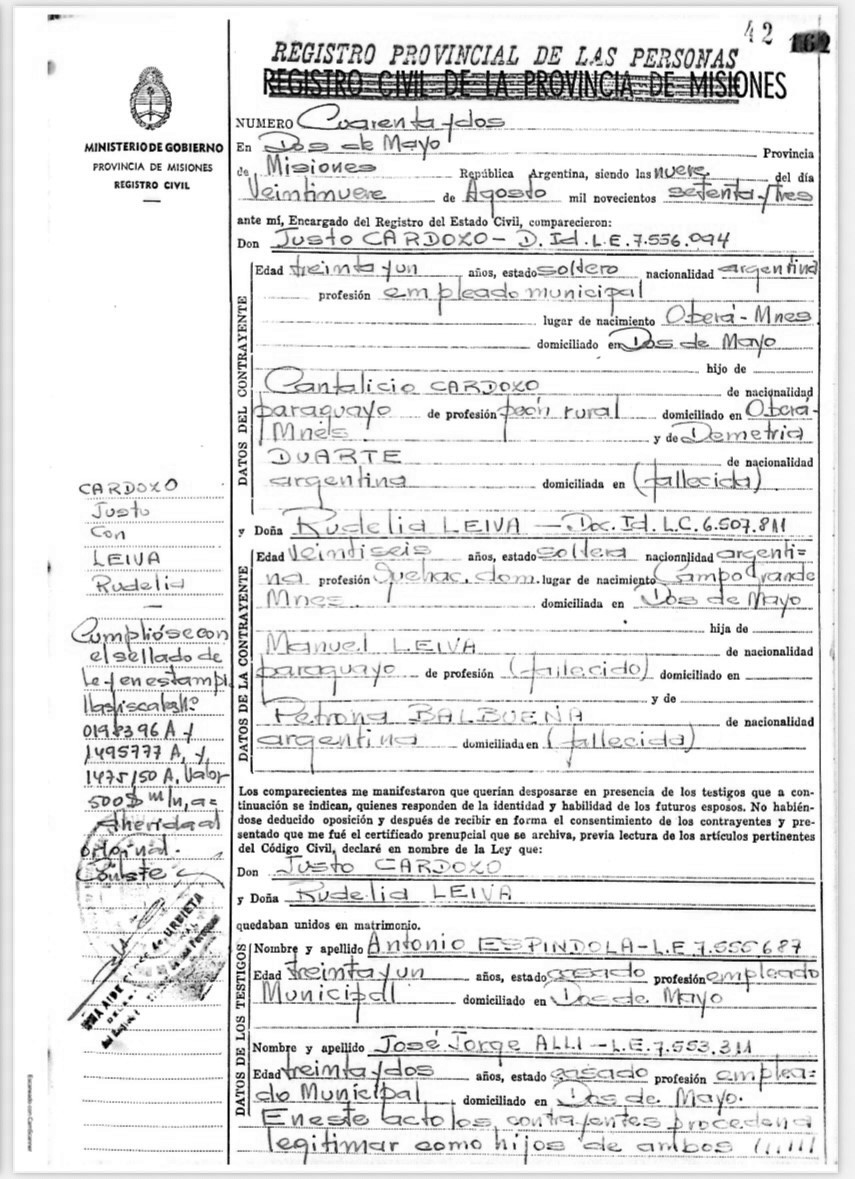 42 162
REGISTRO PROVINCIAL DE LAS PERSONAS
REGISTRO CIVIL DE LA PROVINCIA DE MISIONES
MINISTERIO DE GOBIERNO
PROVINCIA DE MISIONES
REGISTRO CIVIL
NUMERO Cuarenta y dos
En Dos de Mayo Provincia
de Misiones República Argentina, siendo las nueve del día
Veintinueve de Agosto mil novecientos setenta y tres
ante mí, Encargado del Registro del Estado Civil, comparecieron:
Don Justo CARDOZO - D. Id. L.E. 7.556.094
DATOS DEL CONTRAYENTE
Edad treinta y un años, estado soltero nacionalidad argentina
profesión empleado municipal
lugar de nacimiento Oberá - Mnes
domiciliado en Dos de Mayo
hijo de
Cantalicio CARDOZO de nacionalidad
paraguayo de profesión peón rural domiciliado en Oberá-
Mnes. y de Demetria
DUARTE de nacionalidad
argentina domiciliada en (fallecida)
y Doña Rudelia LEIVA - Doc. Id. L.C. 6.507.811
DATOS DE LA CONTRAYENTE
Edad Veintiseis años, estado soltera nacionalidad argenti=
na profesión Quehac. dom. lugar de nacimiento Campo Grande
Mnes domiciliada en Dos de Mayo
hija de
Manuel LEIVA de nacionalidad
paraguayo de profesión (fallecido) domiciliado en
y de
Petrona BALBUENA de nacionalidad
argentina domiciliada en (fallecida)
Los comparecientes me manifestaron que querían desposarse en presencia de los testigos que a con-
tinuación se indican, quienes responden de la identidad y habilidad de los futuros esposos. No habién-
dose deducido oposición y después de recibir en forma el consentimiento de los contrayentes y pre-
sentado que me fué el certificado prenupcial que se archiva, previa lectura de los artículos pertinentes
del Código Civil, declaré en nombre de la Ley que:
Don Justo CARDOZO
y Doña Rudelia LEIVA
quedaban unidos en matrimonio.
DATOS DE LOS TESTIGOS
Nombre y apellido Antonio ESPINDOLA - L.E 7.555.687
Edad treinta y un años, estado casado profesión empleado
Municipal domiciliado en Dos de Mayo
Nombre y apellido José Jorge ALLI - L.E. 7.553.311
Edad treinta y dos años, estado casado profesión emplea=
do Municipal domiciliado en Dos de Mayo.
En este acto los contrayentes proceden a
legitimar como hijos de ambos
CARDOZO
Justo
Con
LEIVA
Rudelia
Cumplióse con
el sellado de
Ley en estampi
llas fiscales Nº
0198396 A y
1495777 A, y
1475150 A. Valor
500$ m/n, a=
dherida al
original.
Conste
de URBIETA
Escaneado con CamScanner